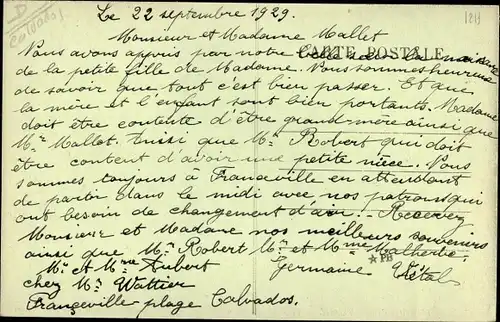 Calvados
1211
Le 22 septembre 1929.
Monsieur et Madame Mallet
CARTE POSTALE
Vous avons appris par notre la naissance
de la petite fille de Madame. Nous sommes heureux
de savoir que tout c'est bien passer. Et que
la mère et l'enfant sont bien portants. Madame
doit être contente d'être grand mère ainsi que
Mr Mallet. Ainsi que Mr Robert qui doit
être content d'avoir une petite nièce. Vous
sommes toujours à Franceville en attendant
de partir dans le midi avec nos patrons qui
ont besoin de changement d'air. Recevez
Monsieur et Madame nos meilleurs souvenirs
ainsi que Mr Robert Mr et Mme Malherbe.
PB
Mr et Mme Aubert Germaine Vétal
chez Mr Wattier
Franceville plage Calvados.